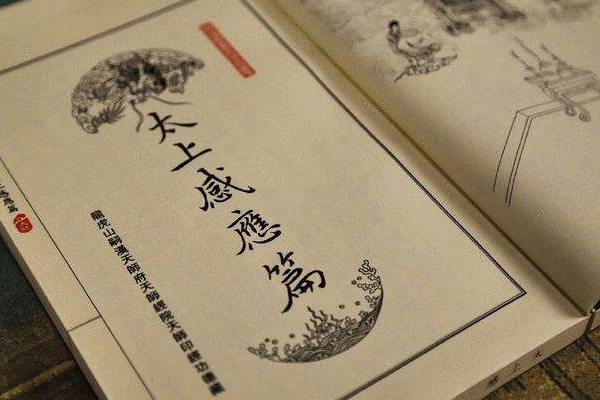 太上感應篇
龍虎山嗣漢天師府天師經院天師印經功德藏